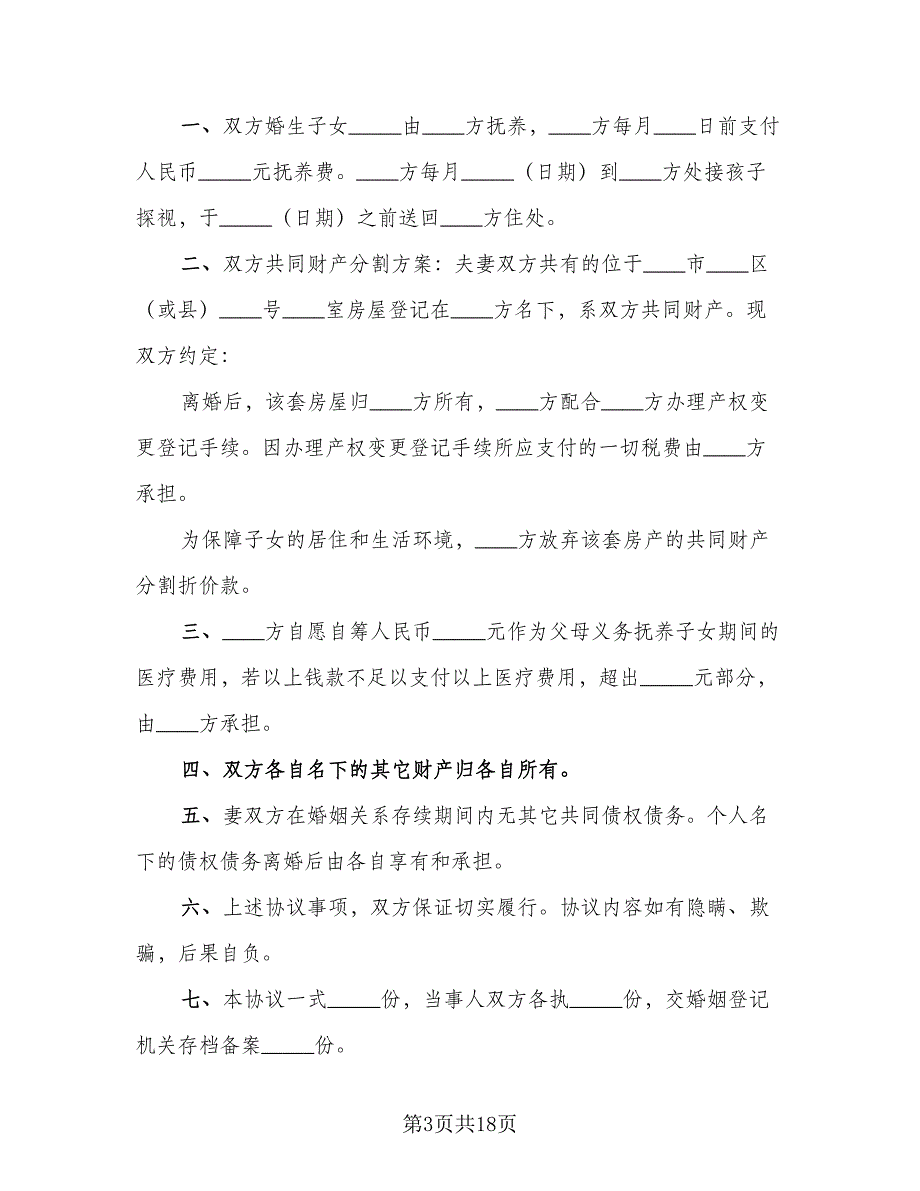 一、双方婚生子女_____由____方抚养，____方每月____日前支付
人民币_____元抚养费。____方每月_____（日期）到____方处接孩子
探视，于_____（日期）之前送回____方住处。
二、双方共同财产分割方案：夫妻双方共有的位于____市____区
（或县）____号____室房屋登记在____方名下，系双方共同财产。现
双方约定：
离婚后，该套房屋归____方所有，____方配合____方办理产权变
更登记手续。因办理产权变更登记手续所应支付的一切税费由____方
承担。
为保障子女的居住和生活环境，____方放弃该套房产的共同财产
分割折价款。
三、____方自愿自筹人民币_____元作为父母义务抚养子女期间的
医疗费用，若以上钱款不足以支付以上医疗费用，超出_____元部分，
由____方承担。
四、双方各自名下的其它财产归各自所有。
五、妻双方在婚姻关系存续期间内无其它共同债权债务。个人名
下的债权债务离婚后由各自享有和承担。
六、上述协议事项，双方保证切实履行。协议内容如有隐瞒、欺
骗，后果自负。
七、本协议一式_____份，当事人双方各执_____份，交婚姻登记
机关存档备案_____份。
第3页共18页